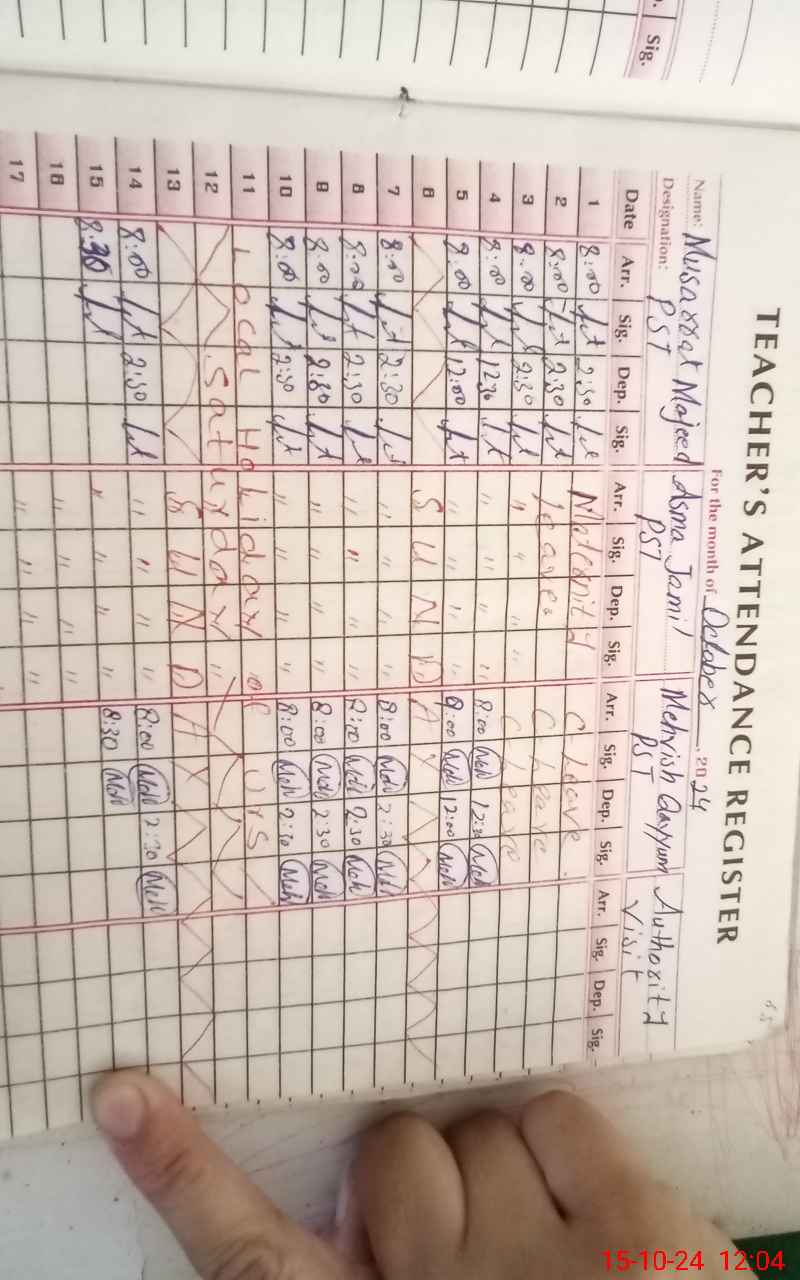 Sig.
TEACHER'S ATTENDANCE REGISTER
For the month of October, 2024
Name: Musarrat Majeed Asma Jamil Mehvish Qayyum Authority
Designation: PST PST PST Visit
Date Arr. Sig. Dep. Sig. Arr. Sig. Dep. Sig. Arr. Sig. Dep. Sig. Arr. Sig. Dep. Sig.
1 8:00 2:30 Maternity C Leave
2 8:00 2:30 leaves C Leave
3 8:00 2:30 " " " " C Leave
4 8:00 12:30 " " " " 8:00 Meh 12:30 Meh
5 8:00 12:00 " " " " 8:00 Meh 12:00 Meh
6 S U N D A Y
7 8:00 2:30 " " " " 8:00 Meh 2:30 Meh
8 8:00 2:30 " " " " 8:00 Meh 2:30 Meh
9 8:00 2:30 " " " " 8:00 Meh 2:30 Meh
10 8:00 2:30 " " " " 8:00 Meh 2:30 Meh
11 Local Holiday of Urs
12 Saturday "
13 S U N D A Y
14 8:00 2:30 " " " " 8:00 Meh 2:30 Meh
15 8:30 " " " " 8:30 Meh
16 " " " "
17 " " " "
15-10-24 12:04